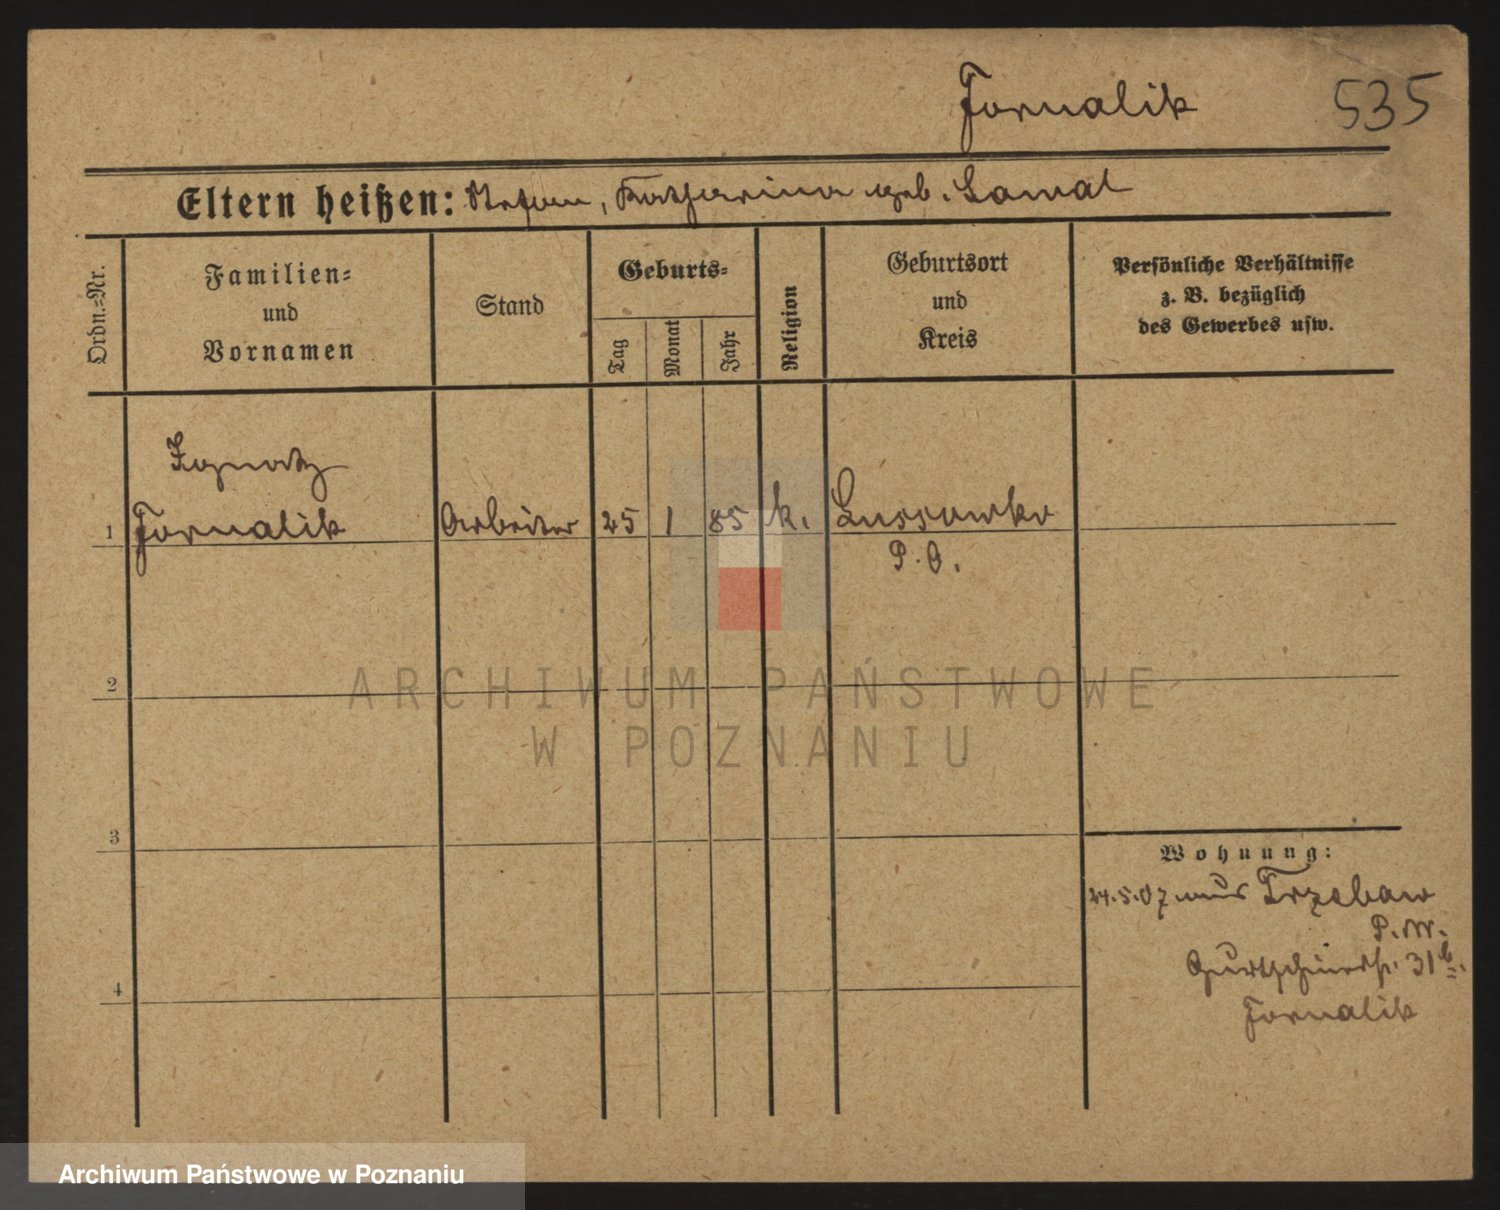 Fornalik 535
Eltern heißen: Stefan, Katharina geb. Lamal
Ordn.-Nr.
Familien-
und
Vornamen
Stand
Geburts-
Tag
Monat
Jahr
Religion
Geburtsort
und
Kreis
Persönliche Verhältnisse
z. B. bezüglich
des Gewerbes usw.
Ignatz
1 Fornalik Arbeiter 25 1 85 k. Lussowko
P. O.
2
ARCHIWUM PAŃSTWOWE
W POZNANIU
3
Wohnung:
24.5.07 aus Trzebaw
P. W.
31b.
Fornalik
4
Archiwum Państwowe w Poznaniu